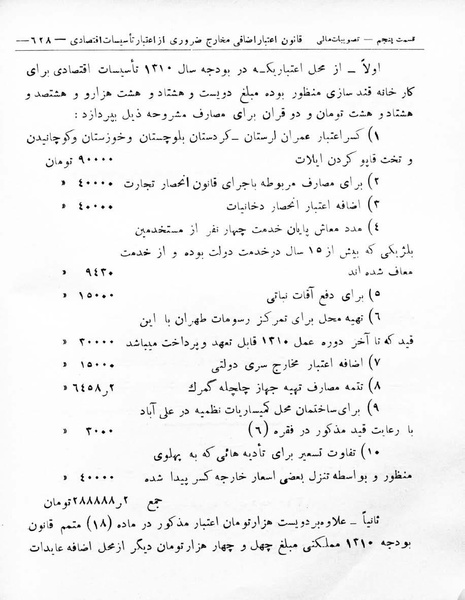 قسمت پنجم — تصویبات مالی قانون اعتبار اضافی مخارج ضروری از اعتبار تأسیسات اقتصادی — ۶۲۸ —
اولاً — از محل اعتباریکه در بودجه سال ۱۳۱۰ تأسیسات اقتصادی برای
کار خانه قند سازی منظور بوده مبلغ دویست و هشتاد و هشت هزارو و هشتصد و
هشتاد و هشت تومان و دو قران برای مصارف مشروحه ذیل بپردازد :
۱) کسر اعتبار عمران لرستان — کردستان بلوچستان وخوزستان وکوچانیدن
و تخت قاپو کردن ایلات ۹۰۰۰۰ تومان
۲) برای مصارف مربوطه باجرای قانون انحصار تجارت ۴۰۰۰۰ »
۳) اضافه اعتبار انحصار دخانیات ۴۰۰۰۰ »
۴) مدد معاش پایان خدمت چهار نفر از مستخدمین
بلژیکی که بیش از ۱۵ سال درخدمت دولت بوده و از خدمت
معاف شده اند ۹۴۳۰ »
۵) برای دفع آفات نباتی ۱۵۰۰۰ »
۶) تهیه محل برای تمرکز رسومات طهران با این
قید که تا آخر دوره عمل ۱۳۱۰ قابل تعهد و پرداخت میباشد ۳۰۰۰۰ »
۷) اضافه اعتبار مخارج سری دولتی ۱۵۰۰۰ »
۸) تتمه مصارف تهیه جهاز چلچله گمرك ۶۴۵۸٫۲ »
۹) برای ساختمان محل کمیساریات نظمیه در علی آباد
با رعایت قید مذکور در فقره (۶) ۳۰۰۰ »
۱۰) تفاوت تسعیر برای تأدیه هائی که به پهلوی
منظور و بواسطه تنزل بعضی اسعار خارجه کسر پیدا شده ۴۰۰۰۰ »
جمع ۲۸۸۸۸۸٫۲ تومان
ثانیاً — علاوه بردویست هزارتومان اعتبار مذکور در ماده (۱۸) متمم قانون
بودجه ۱۳۱۰ مملکتی مبلغ چهل و چهار هزارتومان دیگر ازمحل اضافه عایدات